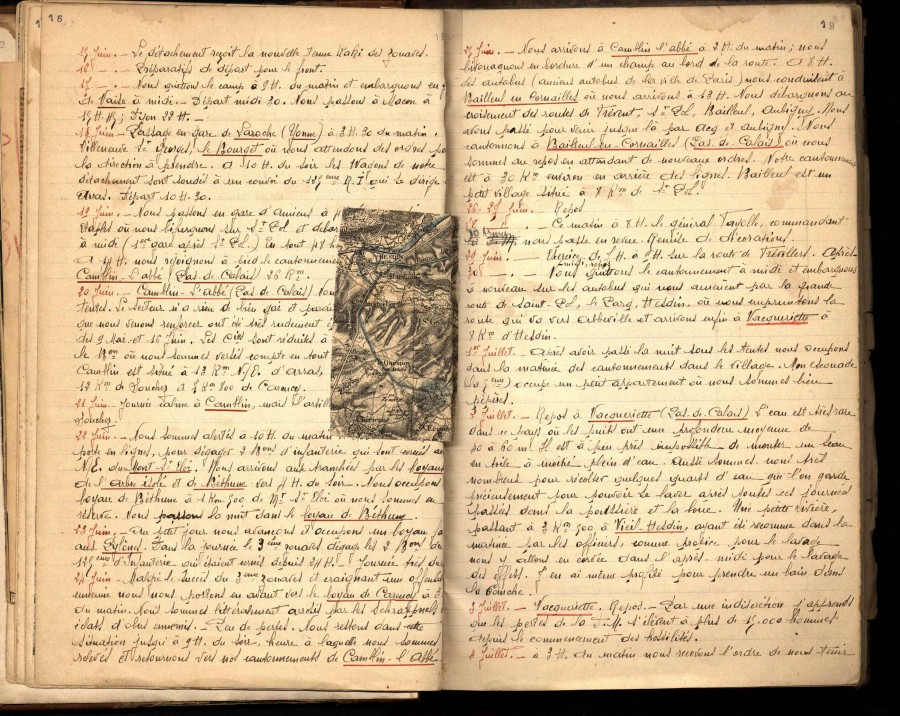 18
15 Juin. — Le détachement reçoit la nouvelle tenue Kaki des zouaves.
16 — . — Préparatifs de départ pour le front.
17 — . — Nous quittons le camp à 9 H. du matin et embarquons en
de Vaise à midi. Départ midi 30. Nous passons à Macon à
Dijon 22 H. —
18 Juin — Passage en gare de Laroche (Yonne) à 3 H. 30 du matin.
Villeneuve St Georges, le Bourget où nous attendons des ordres po
la direction à prendre. à 10 H. du soir les Wagons de notre
détachement sont soudés à un convoi du R. I qui se dirige
Arras. Départ 10 H. 30.
19 Juin. — Nous passons en gare d'Amiens à
où nous bifurquons sur St Pol et débar
à midi (1ère gare après St Pol.) En tout
à 14 H. nous rejoignons à pied le cantonnement
Camblin-L'abbé (Pas de Calais) 26 Km.
20 Juin. — Camblin-L'Abbé (Pas de Calais)
tentes. Le secteur n'a rien de bien gai et parai
que nous venons renforcer ont été très rudement
des 9 Mai et 10 Juin. Les Cies sont réduites à
le Bon où nous sommes versés compte en tout
Camblin est situé à 13 Km N/E. d'Arras,
12 Km de Souchez et 7 Km 500 de Carency.
21 Juin — Journée calme à Camblin, mais l'artille
Souchez.
22 Juin. — Nous sommes alertés à 10 H. du matin
en lignes, pour dégager 2 Bons d'infanterie qui sont cernés au
N/E. du Mont St Eloi. Nous arrivons aux tranchées par les boyaux
de l'arbre isolé et de Béthune vers 4 H. du soir. Nous occupons
boyau de Béthune à 1 Km 500 de Mt St Eloi où nous sommes en
réserve. Nous passons la nuit dans le boyau de Béthune.
23 Juin. — Au petit jour nous avançons et occupons un boyau
aux Dans la journée le 3ème zouaves dégage les 2 Bons du
d'Infanterie qui étaient cernés depuis 24 H. Journée très
24 Juin — Malgré le succès du 3ème zouaves et craignant une offensi
ennemie nous nous portons en avant vers le boyau de Carency à 3
du matin. Nous sommes littéralement arrosés par les Schrappnels
éclats d'obus ennemis. — Peu de pertes. Nous restons dans cette
situation jusqu'à 9 H. du soir, heure à laquelle nous sommes
relevés et retournons vers nos cantonnements de Camblin-l'Abbé
19
25 Juin. — Nous arrivons à Camblin l'abbé à 2 H. du matin ; nous
bivouaquons en bordure d'un champ au bord de la route. à 8 H.
des autobus (anciens autobus de la ville de Paris) nous conduisent à
Bailleul en Cornailles où nous arrivons à 13 H. Nous débarquons au
croisement des routes de Frévent, St Pol, Bailleul, Aubigny. Nous
avons passé pour venir jusque là par Acq et Aubigny. Nous
cantonnons à Bailleul-en-Cornailles (Pas. de. Calais) où nous
sommes au repos en attendant de nouveaux ordres. Notre cantonnement
est à 20 Km environ en arrière des lignes. Bailleul est un
petit village situé à 8 Km de St Pol.
26. 27. Juin. — Repos.
— Ce matin à 8 H. le général commandant
nous passe en revue. Remise de décorations.
29 Juin. — Exercice de 5 H. à 9 H. sur la route de Après
midi, repos
30 — Nous quittons le cantonnement à midi et embarquons
à nouveau sur les autobus qui nous amènent par la grande
route de Saint. Pol, le Parcq, Hesdin, où nous empruntons la
route qui va vers Abbeville et arrivons enfin à Vacqueriette à
8 Km d'Hesdin.
1er Juillet. — Après avoir passé la nuit sous les tentes nous occupons
dans la matinée des cantonnements dans le village. Mon escouade
la occupe un petit appartement où nous sommes bien
pépères.
2 Juillet. — Repos à Vacqueriette (Pas. de Calais) L'eau est très rare
dans ce pays où les puits ont une profondeur moyenne de
40 à 60 m. Il est à peu près impossible de monter un seau
en toile à moitié plein d'eau. Aussi sommes nous très
nombreux pour récolter quelques quarts d'eau que l'on garde
précieusement pour pouvoir se laver après toutes ces journées
passées dans la poussière et la boue. Une petite rivière,
passant à 3 Km 500 à Vieil-Hesdin, ayant été reconnue dans la
matinée par les officiers, comme propice pour le lavage
nous y allons en corvée dans l'après-midi pour le lavage
des effets. J'en ai même profité pour prendre un bain dans
la Canche.
3 Juillet. — Vacqueriette. Repos. — Par une indiscrétion j'apprends
que les pertes de la D.M. s'élèvent à plus de 15.000 hommes
depuis le commencement des hostilités.
4 Juillet. — à 3 H. du matin nous recevons l'ordre de nous tenir